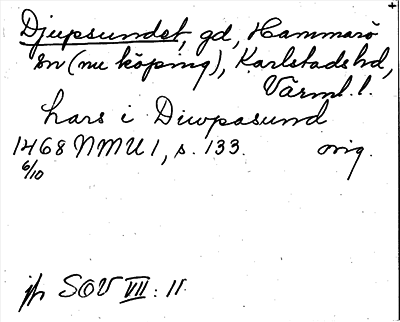 Djupsundet, gd, Hammarö
sn (nu köping), Karlstads hd,
Värml. l.
Lars i Diwpasund
1468 NMU 1, s. 133. orig.
6/10
jfr SOV VII: 11